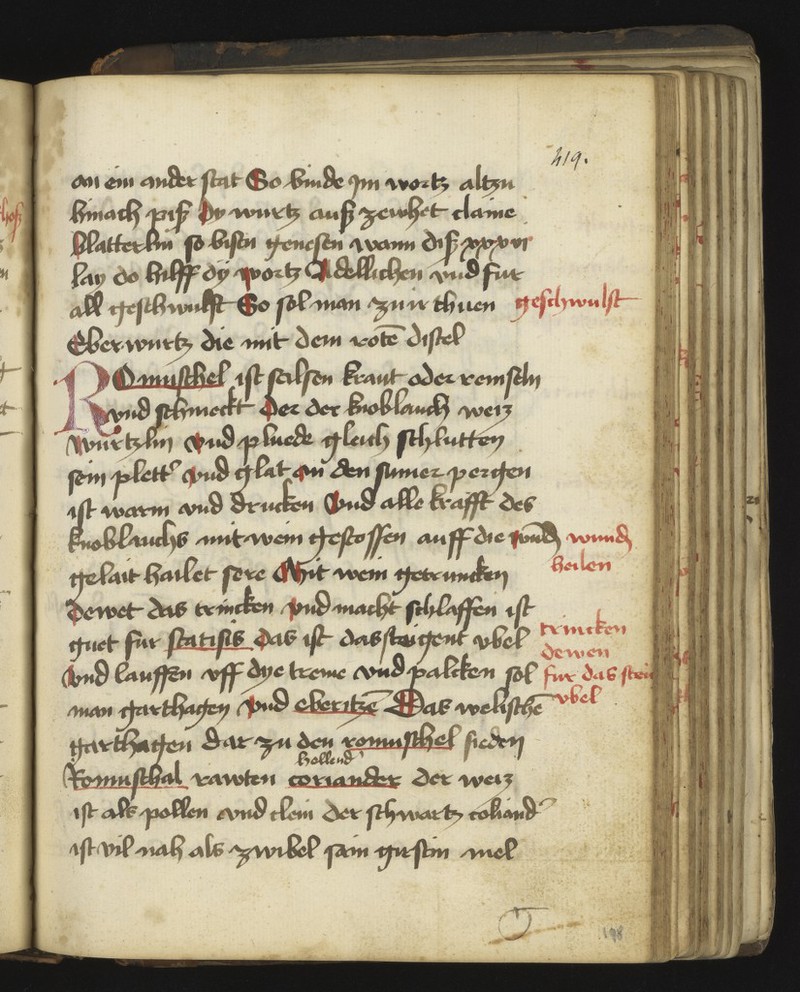 219.
an ein ander stat So binde im wortz altzu
hinach piß Dy wurtz auß zewhet claine
blatterlin so bistu genesen wann diß xxxvi
lay do hilff dy wortz Adellichen vnd fur
all geschwulst So sol man zu ir thuen geschwulst
Eberwurtz die mit dem rotē distel
ROmuschel ist seltsen kraut oder remseln
vnd schmeckt Der der knoblauch weiz
wurtzlin vnd pluede gleich schlutten
sein plett vnd glat an den sumer pergen
ist warm vnd drucken Vnd alle krafft des
knoblauchs mit wein gestossen auff die wund wund
gelait hailet sere Mit wein getruncken heilen
Dewet das trincken vnd macht schlaffen ist
guet fur statisis das ist das steigent vbel trincken
dewen
vnd lauffen vff dye treme vnd palcken sol fur das stei
man garthagen vnd eberitzē Das welischē vbel
garthagen dar zu den romuschel sieden
hollend
Romuschal rawten coriander der weiz
ist als pollen vnd clein der schwartz coliand
ist vil nah als zwibel sam girstin mel
198